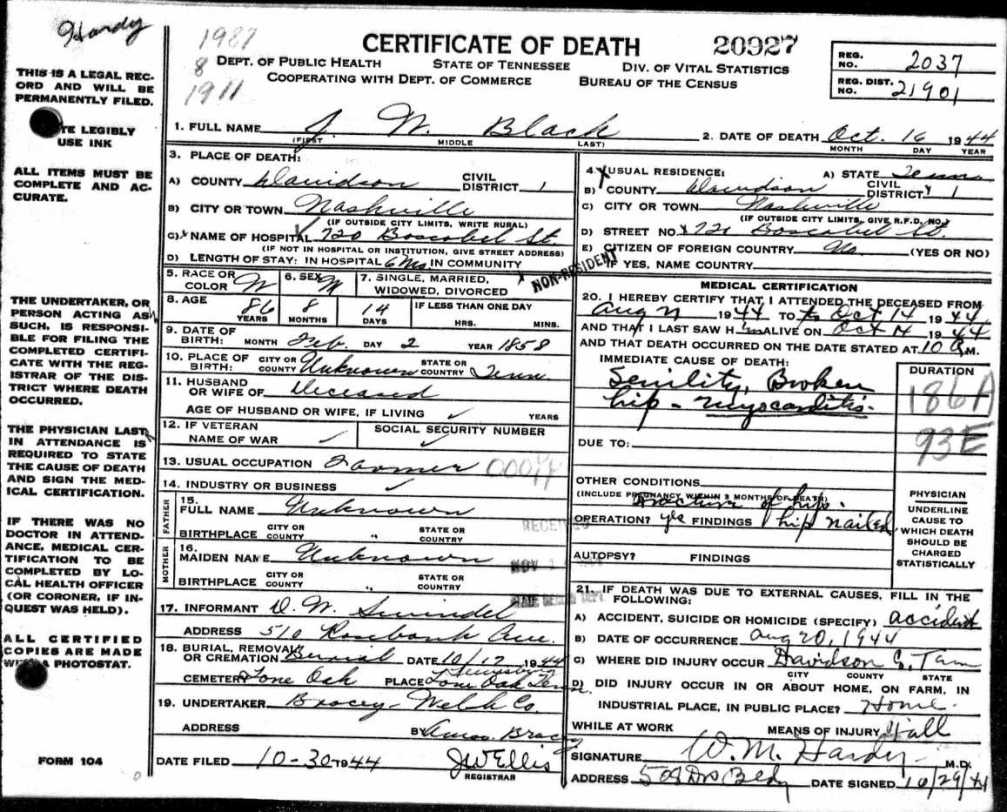 Hardy
1987
8
1911
CERTIFICATE OF DEATH 20927
DEPT. OF PUBLIC HEALTH STATE OF TENNESSEE DIV. OF VITAL STATISTICS
COOPERATING WITH DEPT. OF COMMERCE BUREAU OF THE CENSUS
REG. NO. 2037
REG. DIST. NO. 21901
THIS IS A LEGAL REC-
ORD AND WILL BE
PERMANENTLY FILED.
TE LEGIBLY
USE INK
ALL ITEMS MUST BE
COMPLETE AND AC-
CURATE.
THE UNDERTAKER, OR
PERSON ACTING AS
SUCH, IS RESPONSI-
BLE FOR FILING THE
COMPLETED CERTIFI-
CATE WITH THE REG-
ISTRAR OF THE DIS-
TRICT WHERE DEATH
OCCURRED.
THE PHYSICIAN LAST
IN ATTENDANCE IS
REQUIRED TO STATE
THE CAUSE OF DEATH
AND SIGN THE MED-
ICAL CERTIFICATION.
IF THERE WAS NO
DOCTOR IN ATTEND-
ANCE, MEDICAL CER-
TIFICATION TO BE
COMPLETED BY LO-
CAL HEALTH OFFICER
(OR CORONER, IF IN-
QUEST WAS HELD).
ALL CERTIFIED
COPIES ARE MADE
A PHOTOSTAT.
FORM 104
1. FULL NAME J. W. Black
(FIRST) MIDDLE LAST)
2. DATE OF DEATH Oct. 16 1944
MONTH DAY YEAR
3. PLACE OF DEATH:
A) COUNTY Davidson CIVIL DISTRICT 1
B) CITY OR TOWN Nashville
(IF OUTSIDE CITY LIMITS, WRITE RURAL)
C) NAME OF HOSPITAL 720 Boscobel St.
(IF NOT IN HOSPITAL OR INSTITUTION, GIVE STREET ADDRESS)
D) LENGTH OF STAY: IN HOSPITAL 6 Mo. IN COMMUNITY
NON-RESIDENT
4. USUAL RESIDENCE: A) STATE Tenn
B) COUNTY Davidson CIVIL DISTRICT 1
C) CITY OR TOWN Nashville
(IF OUTSIDE CITY LIMITS, GIVE R.F.D. NO.)
D) STREET NO. 720 Boscobel St.
E) CITIZEN OF FOREIGN COUNTRY No (YES OR NO)
IF YES, NAME COUNTRY
5. RACE OR COLOR W 6. SEX M 7. SINGLE, MARRIED, WIDOWED, DIVORCED
8. AGE 86 YEARS 8 MONTHS 14 DAYS IF LESS THAN ONE DAY HRS. MINS.
9. DATE OF BIRTH: MONTH Feb. DAY 2 YEAR 1858
10. PLACE OF BIRTH: CITY OR COUNTY Unknown STATE OR COUNTRY Tenn
11. HUSBAND OR WIFE OF Deceased
AGE OF HUSBAND OR WIFE, IF LIVING ✓ YEARS
12. IF VETERAN NAME OF WAR ✓ SOCIAL SECURITY NUMBER ✓
13. USUAL OCCUPATION Farmer
14. INDUSTRY OR BUSINESS ✓
FATHER
15. FULL NAME Unknown
BIRTHPLACE CITY OR COUNTY " STATE OR COUNTRY
MOTHER
16. MAIDEN NAME Unknown
BIRTHPLACE CITY OR COUNTY " STATE OR COUNTRY
RECEIVED
NOV
17. INFORMANT D. W. Swindel
ADDRESS 510 Rosebank Ave.
18. BURIAL, REMOVAL OR CREMATION Burial DATE 10/17 1944
CEMETERY Lone Oak PLACE Lewisburg Lone Oak Tenn.
19. UNDERTAKER Bracey-Welsh Co.
ADDRESS BY Amos Bracey
DATE FILED 10-30-1944 JW Ellis
REGISTRAR
MEDICAL CERTIFICATION
20. I HEREBY CERTIFY THAT I ATTENDED THE DECEASED FROM
Aug 21 1944 TO Oct 14 1944
AND THAT I LAST SAW H im ALIVE ON Oct 14 1944
AND THAT DEATH OCCURRED ON THE DATE STATED AT 10 A M.
IMMEDIATE CAUSE OF DEATH: DURATION
Senility, Broken
hip - myocarditis.
186A
93E
DUE TO:
OTHER CONDITIONS
(INCLUDE PREGNANCY WITHIN 3 MONTHS OF DEATH)
Fracture of hip.
OPERATION? yes FINDINGS hip nailed
AUTOPSY? FINDINGS
PHYSICIAN
UNDERLINE
CAUSE TO
WHICH DEATH
SHOULD BE
CHARGED
STATISTICALLY
21. IF DEATH WAS DUE TO EXTERNAL CAUSES, FILL IN THE FOLLOWING:
A) ACCIDENT, SUICIDE OR HOMICIDE (SPECIFY) accident
B) DATE OF OCCURRENCE Aug 20, 1944
C) WHERE DID INJURY OCCUR Davidson Co Tenn
CITY COUNTY STATE
D) DID INJURY OCCUR IN OR ABOUT HOME, ON FARM, IN
INDUSTRIAL PLACE, IN PUBLIC PLACE? Home.
WHILE AT WORK MEANS OF INJURY Fall
SIGNATURE W. M. Hardy M.D.
ADDRESS 508 Drs Bldg DATE SIGNED 10/29/44